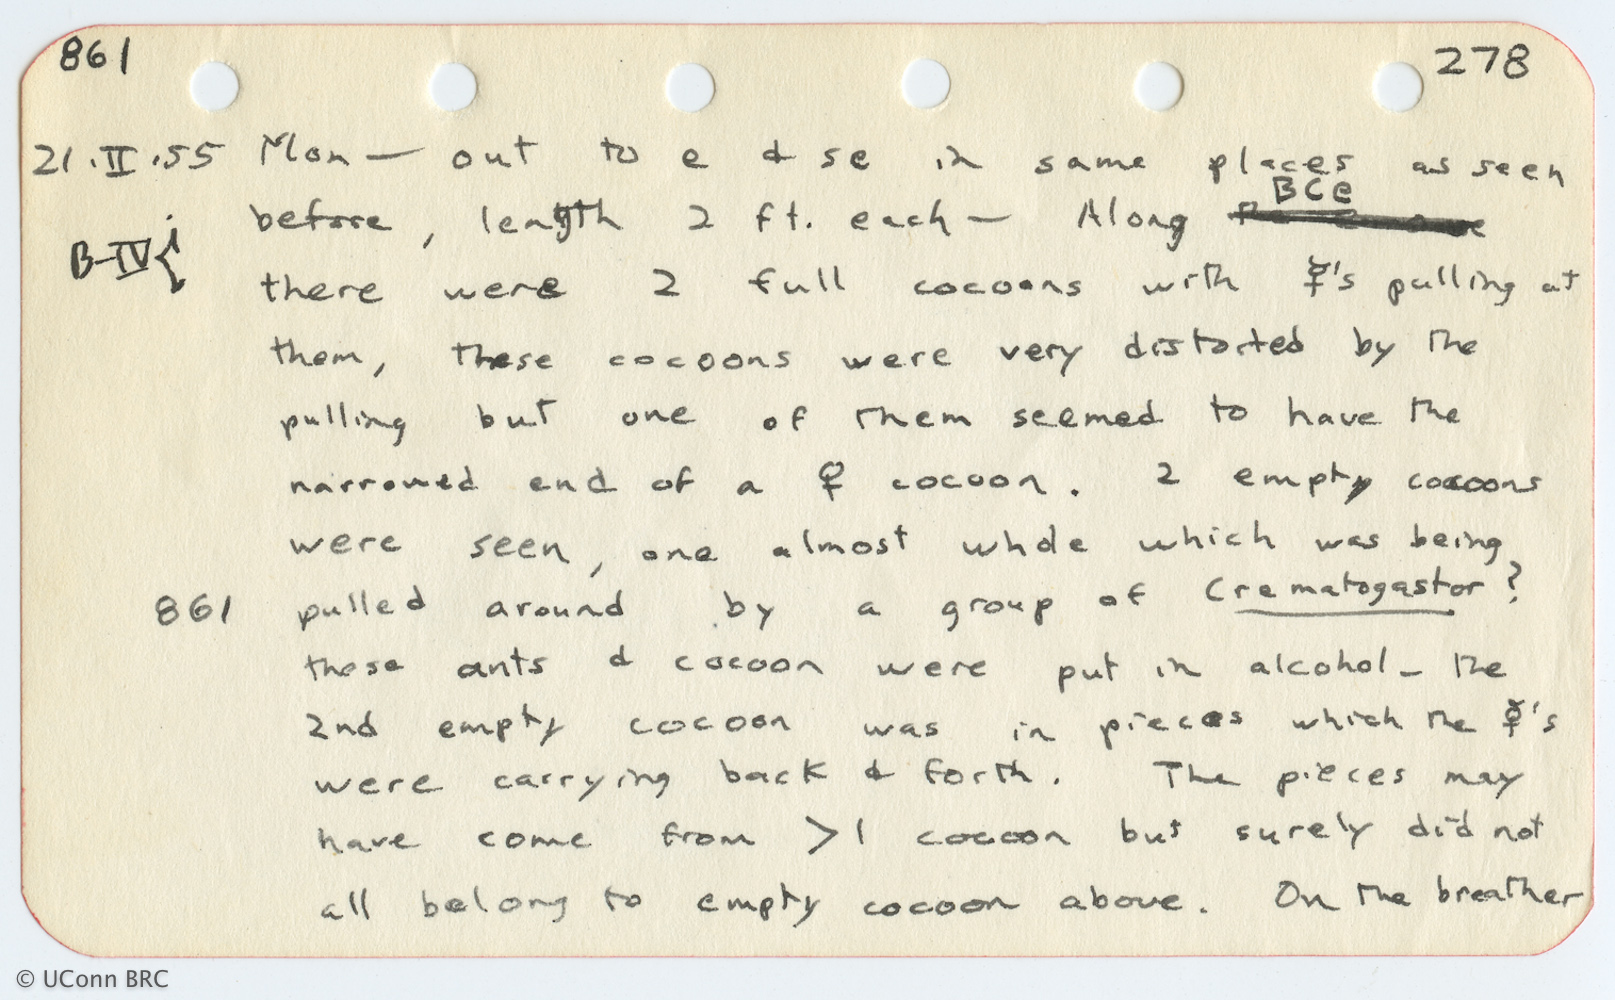 861 278
21.II.55 Mon — out to e & se in same places as seen
BCe
before, length 2 ft. each — Along
B-IV
there were 2 full cocoons with ☿'s pulling at
them, these cocoons were very distorted by the
pulling but one of them seemed to have the
narrowed end of a ♀ cocoon. 2 empty cocoons
were seen, one almost whole which was being
861 pulled around by a group of Crematogastor?
these ants & cocoon were put in alcohol — the
2nd empty cocoon was in pieces which the ☿'s
were carrying back & forth. The pieces may
have come from >1 cocoon but surely did not
all belong to empty cocoon above. On the breather
© UConn BRC